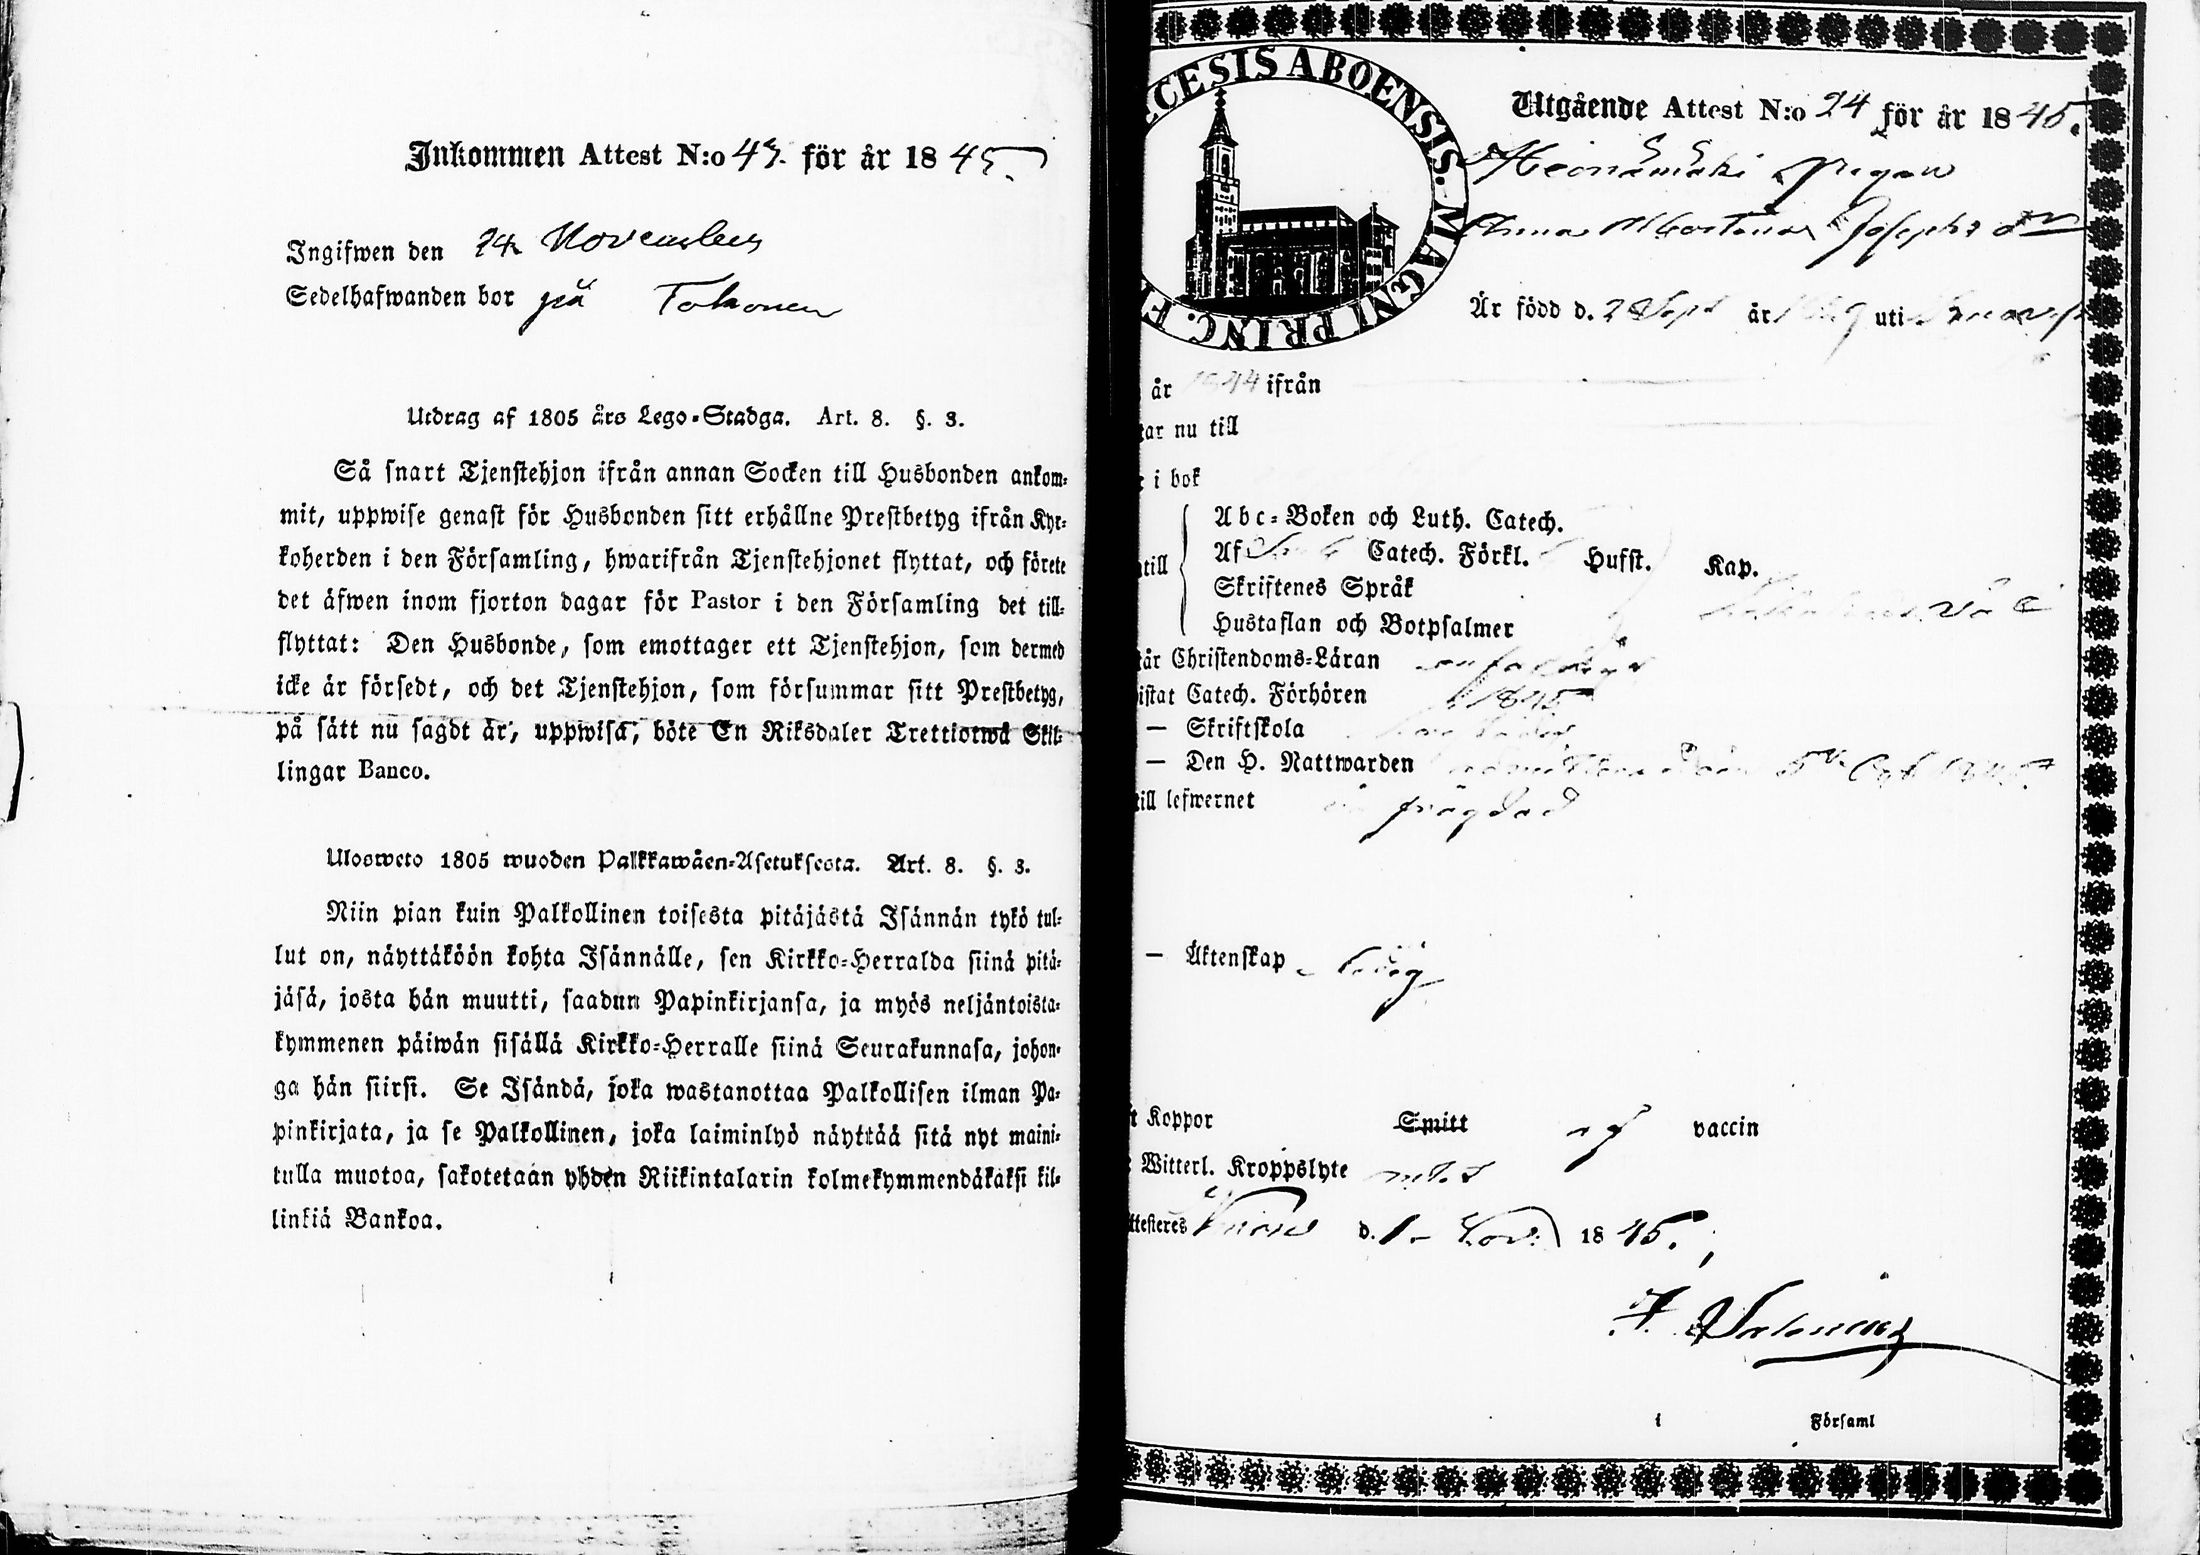 Inkommen Attest N:o 43. för år 1845.
Ingifwen den 24 November
Sedelhafwanden bor på
Utdrag af 1805 års Lego-Stadga. Art. 8. §. 3.
Så snart Tjenstehjon ifrån annan Socken till Husbonden ankom-
mit, uppwise genast för Husbonden sitt erhållne Prestbetyg ifrån Kyr-
koherden i den Församling, hwarifrån Tjenstehjonet flyttat, och förete
det äfwen inom fjorton dagar för Pastor i den Församling det till-
flyttat: Den Husbonde, som emottager ett Tjenstehjon, som dermed
icke är försedt, och det Tjenstehjon, som försummar sitt Prestbetyg,
på sätt nu sagdt är, uppwisa, böte En Riksdaler Trettiotwå Skil-
lingar Banco.
Ulosweto 1805 wuoden Palkkawäen-Asetuksesta. Art. 8. §. 3.
Niin pian kuin Palkollinen toisesta pitäjästä Isännän tykö tul-
lut on, näyttäköön kohta Isännälle, sen Kirkko-Herralda siinä pitä-
jäsä, josta hän muutti, saadun Papinkirjansa, ja myös neljäntoista-
kymmenen päiwän sisällä Kirkko-Herralle siinä Seurakunnasa, johon-
ga hän siirsi. Se Isändä, joka wastanottaa Palkollisen ilman Pa-
pinkirjata, ja se Palkollinen, joka laiminlyö näyttää sitä nyt maini-
tulla muotoa, sakotetaan yhden Riikintalarin kolmekymmendäkaksi kil-
linkiä Bankoa.
CESIS ABOENSIS. MAGNI PRINC. F
Utgående Attest N:o 24 för år 1845.
Heinämäki pigan
Anna Josephs dr
Är född d. 2 Sept år uti
år 1844 ifrån
tar nu till
i bok
till
Abc-Boken och Luth. Catech.
Af Catech. Förkl. Hufst. Kap.
Skriftenes Språk
Hustaflan och Botpsalmer
år Christendoms-Läran
istat Catech. Förhören 1845
— Skriftskola
— Den H. Nattwarden
till lefwernet frägdad
— Äktenskap ledig
t Koppor Smitt af vaccin
Witterl. Kroppslyte
ttesteres d. 1 Nov: 1845.
i Församl